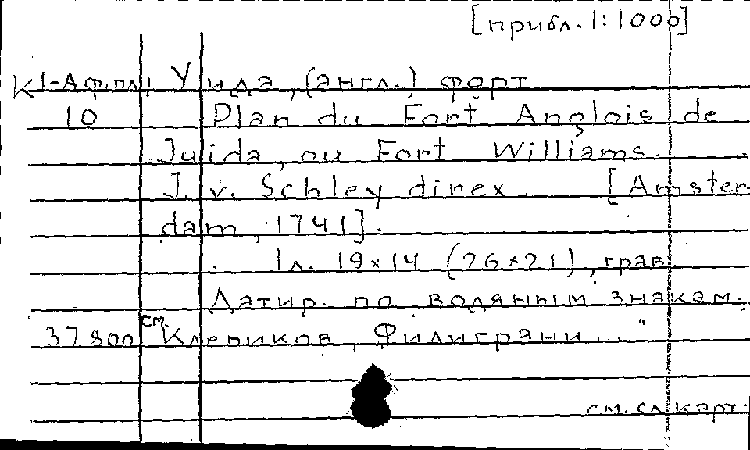 [прибл. 1:1000]
К1-Аф.пл. Уида, (англ.) форт
10 Plan du Fort Anglois de
Juida, ou Fort Williams.
J. v. Schley direx [Amster-
dam, 1741].
1 л. 19×14 (26×21), грав
Датир. по водяным знакам.
37800 см Клепиков, Филиграни..."
см. сл. карт.